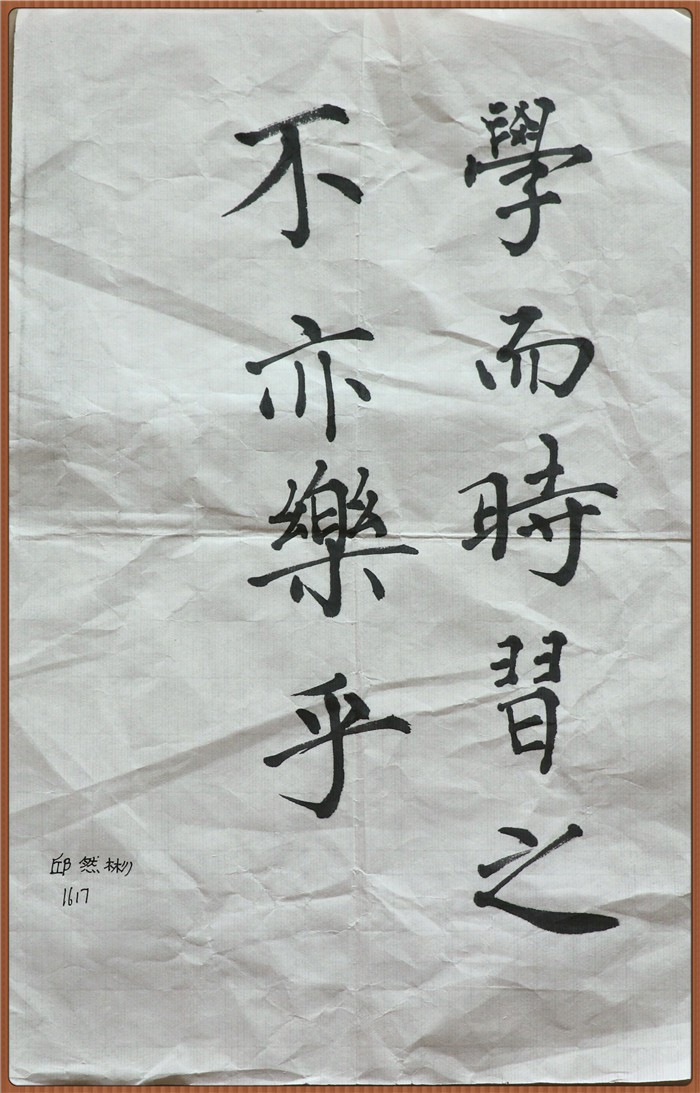 學而時習之
不亦樂乎
邱然彬
1617